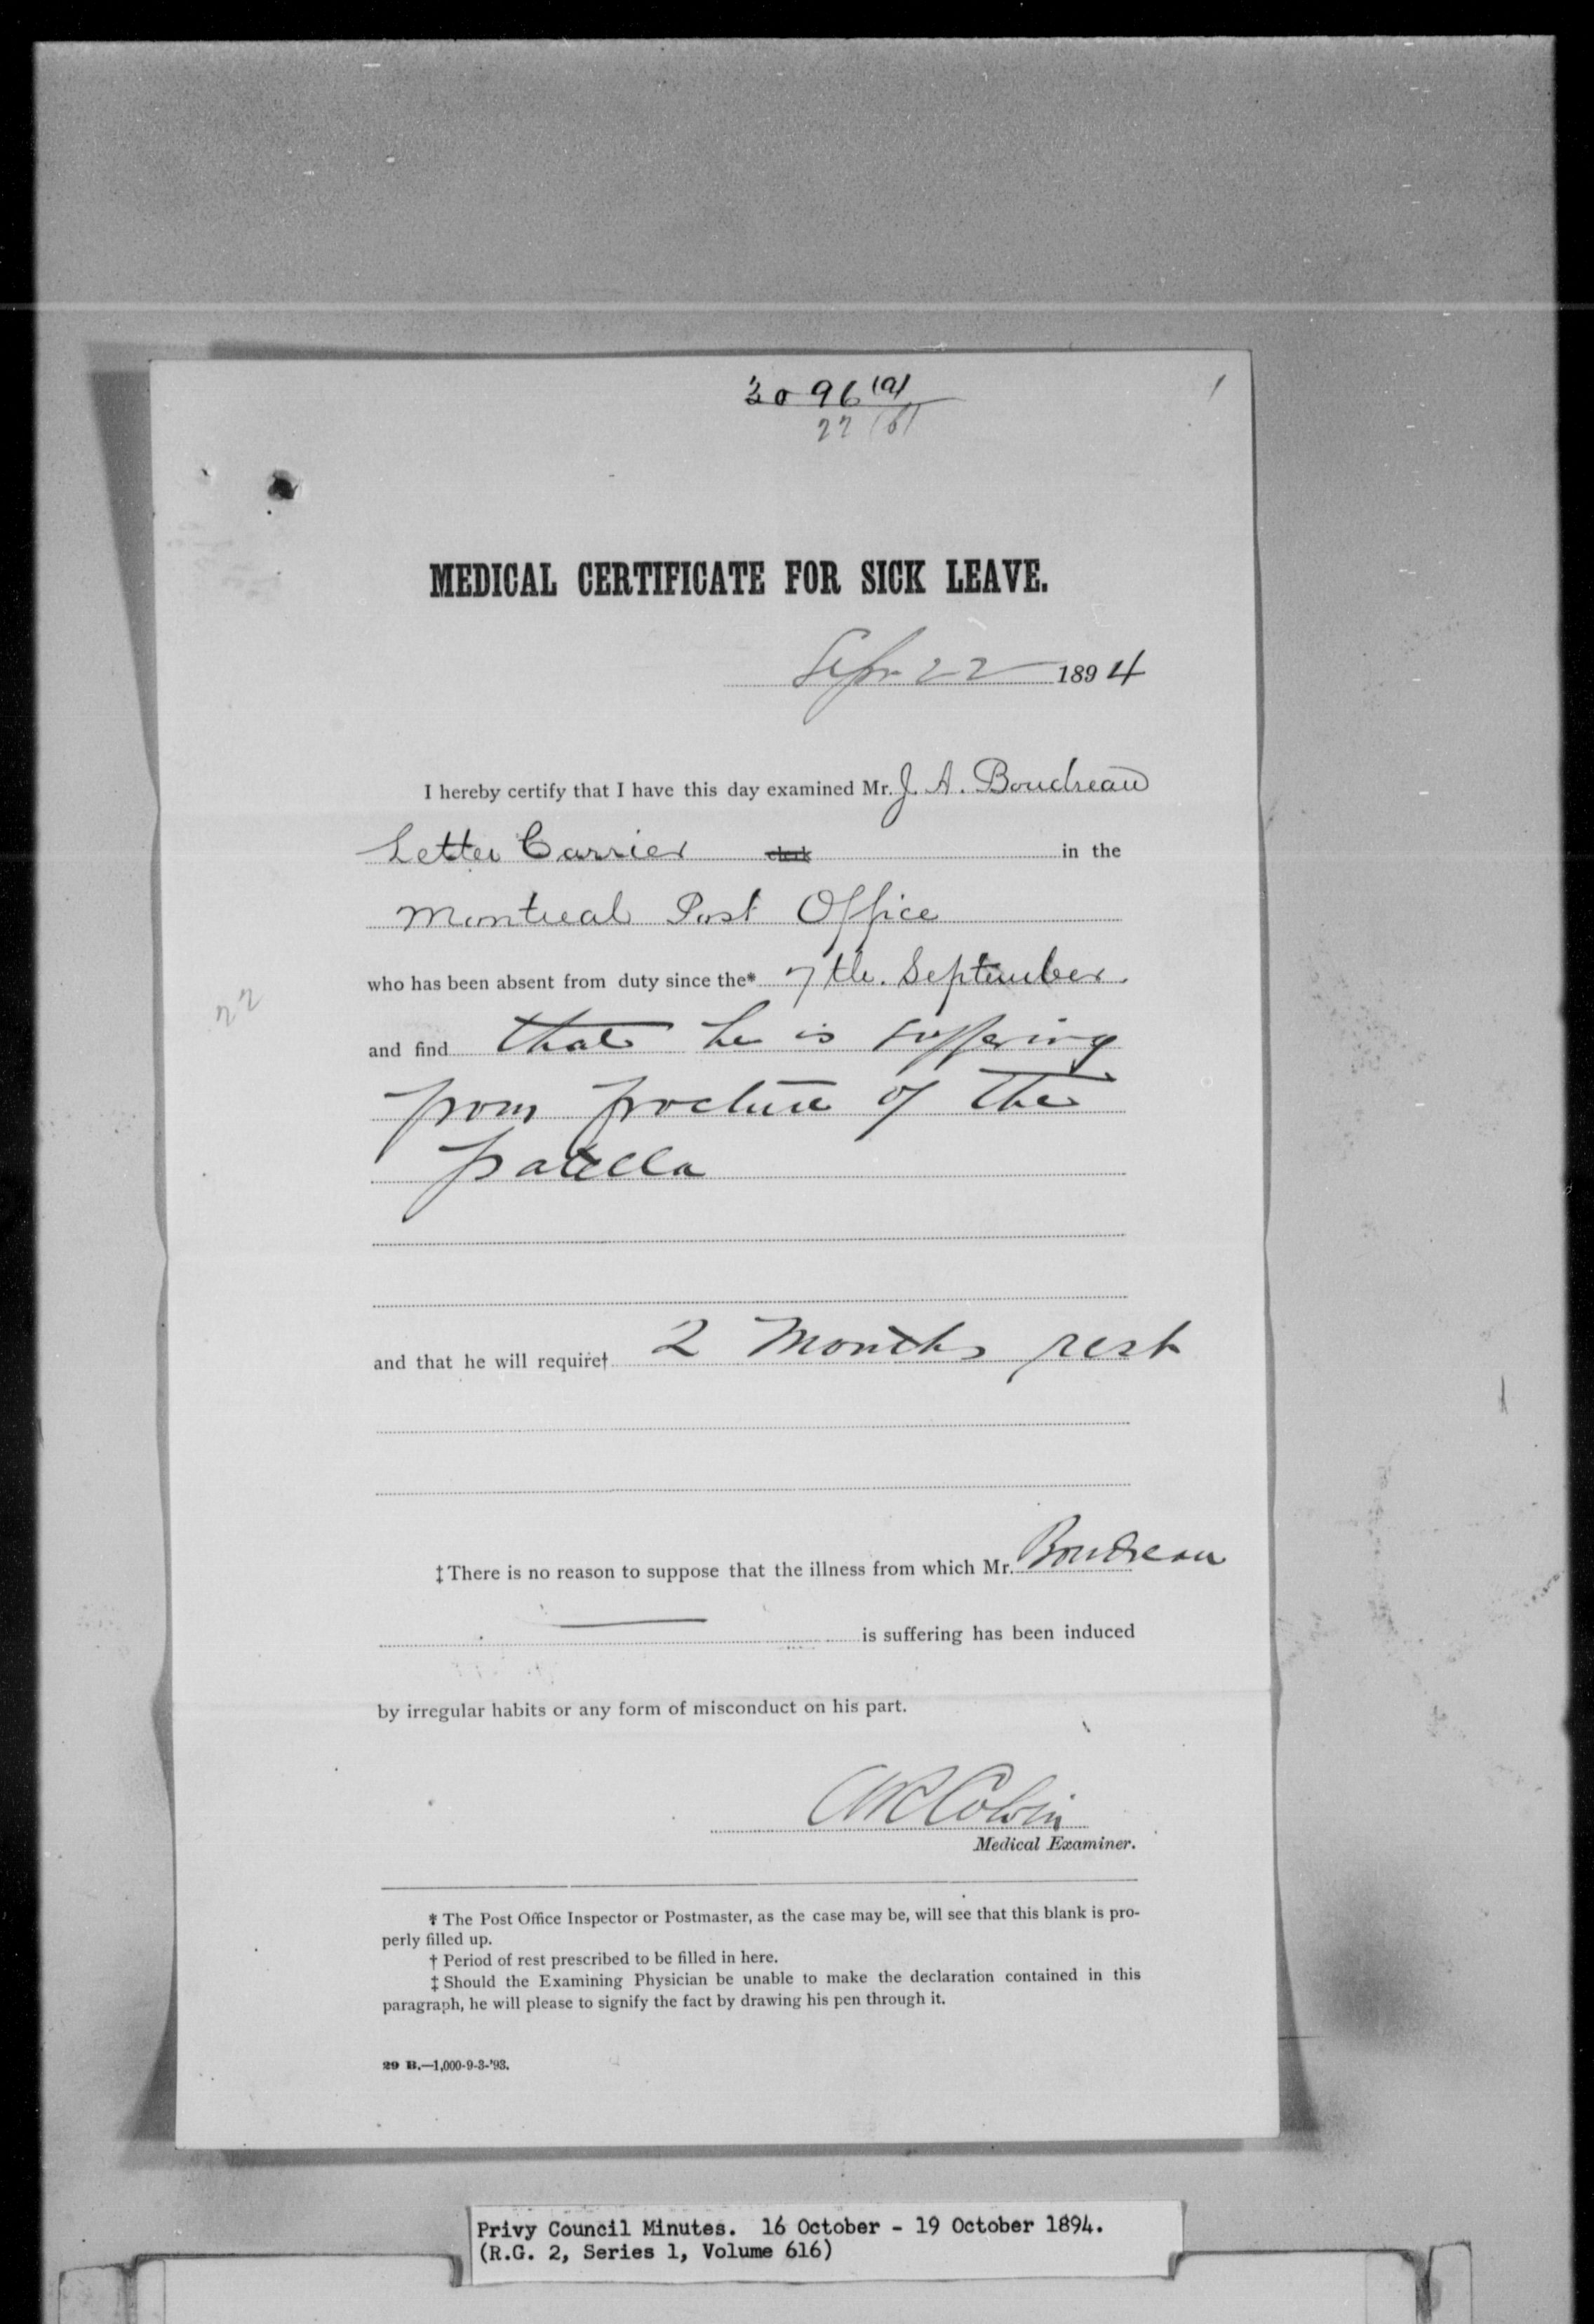 3096 (a)
22 (6)
1
MEDICAL CERTIFICATE FOR SICK LEAVE.
Sepr 22 1894
I hereby certify that I have this day examined Mr. J. A. Boudreau
Letter Carrier clerk in the
Montreal Post Office
who has been absent from duty since the* 7th. September
22
and find that he is suffering
from fracture of the
patella
and that he will require† 2 Months rest
‡ There is no reason to suppose that the illness from which Mr. Boudreau
is suffering has been induced
by irregular habits or any form of misconduct on his part.
Colvin
Medical Examiner.
* The Post Office Inspector or Postmaster, as the case may be, will see that this blank is pro-
perly filled up.
† Period of rest prescribed to be filled in here.
‡ Should the Examining Physician be unable to make the declaration contained in this
paragraph, he will please to signify the fact by drawing his pen through it.
29 B.—1,000-9-3-'93.
Privy Council Minutes. 16 October - 19 October 1894.
(R.G. 2, Series 1, Volume 616)